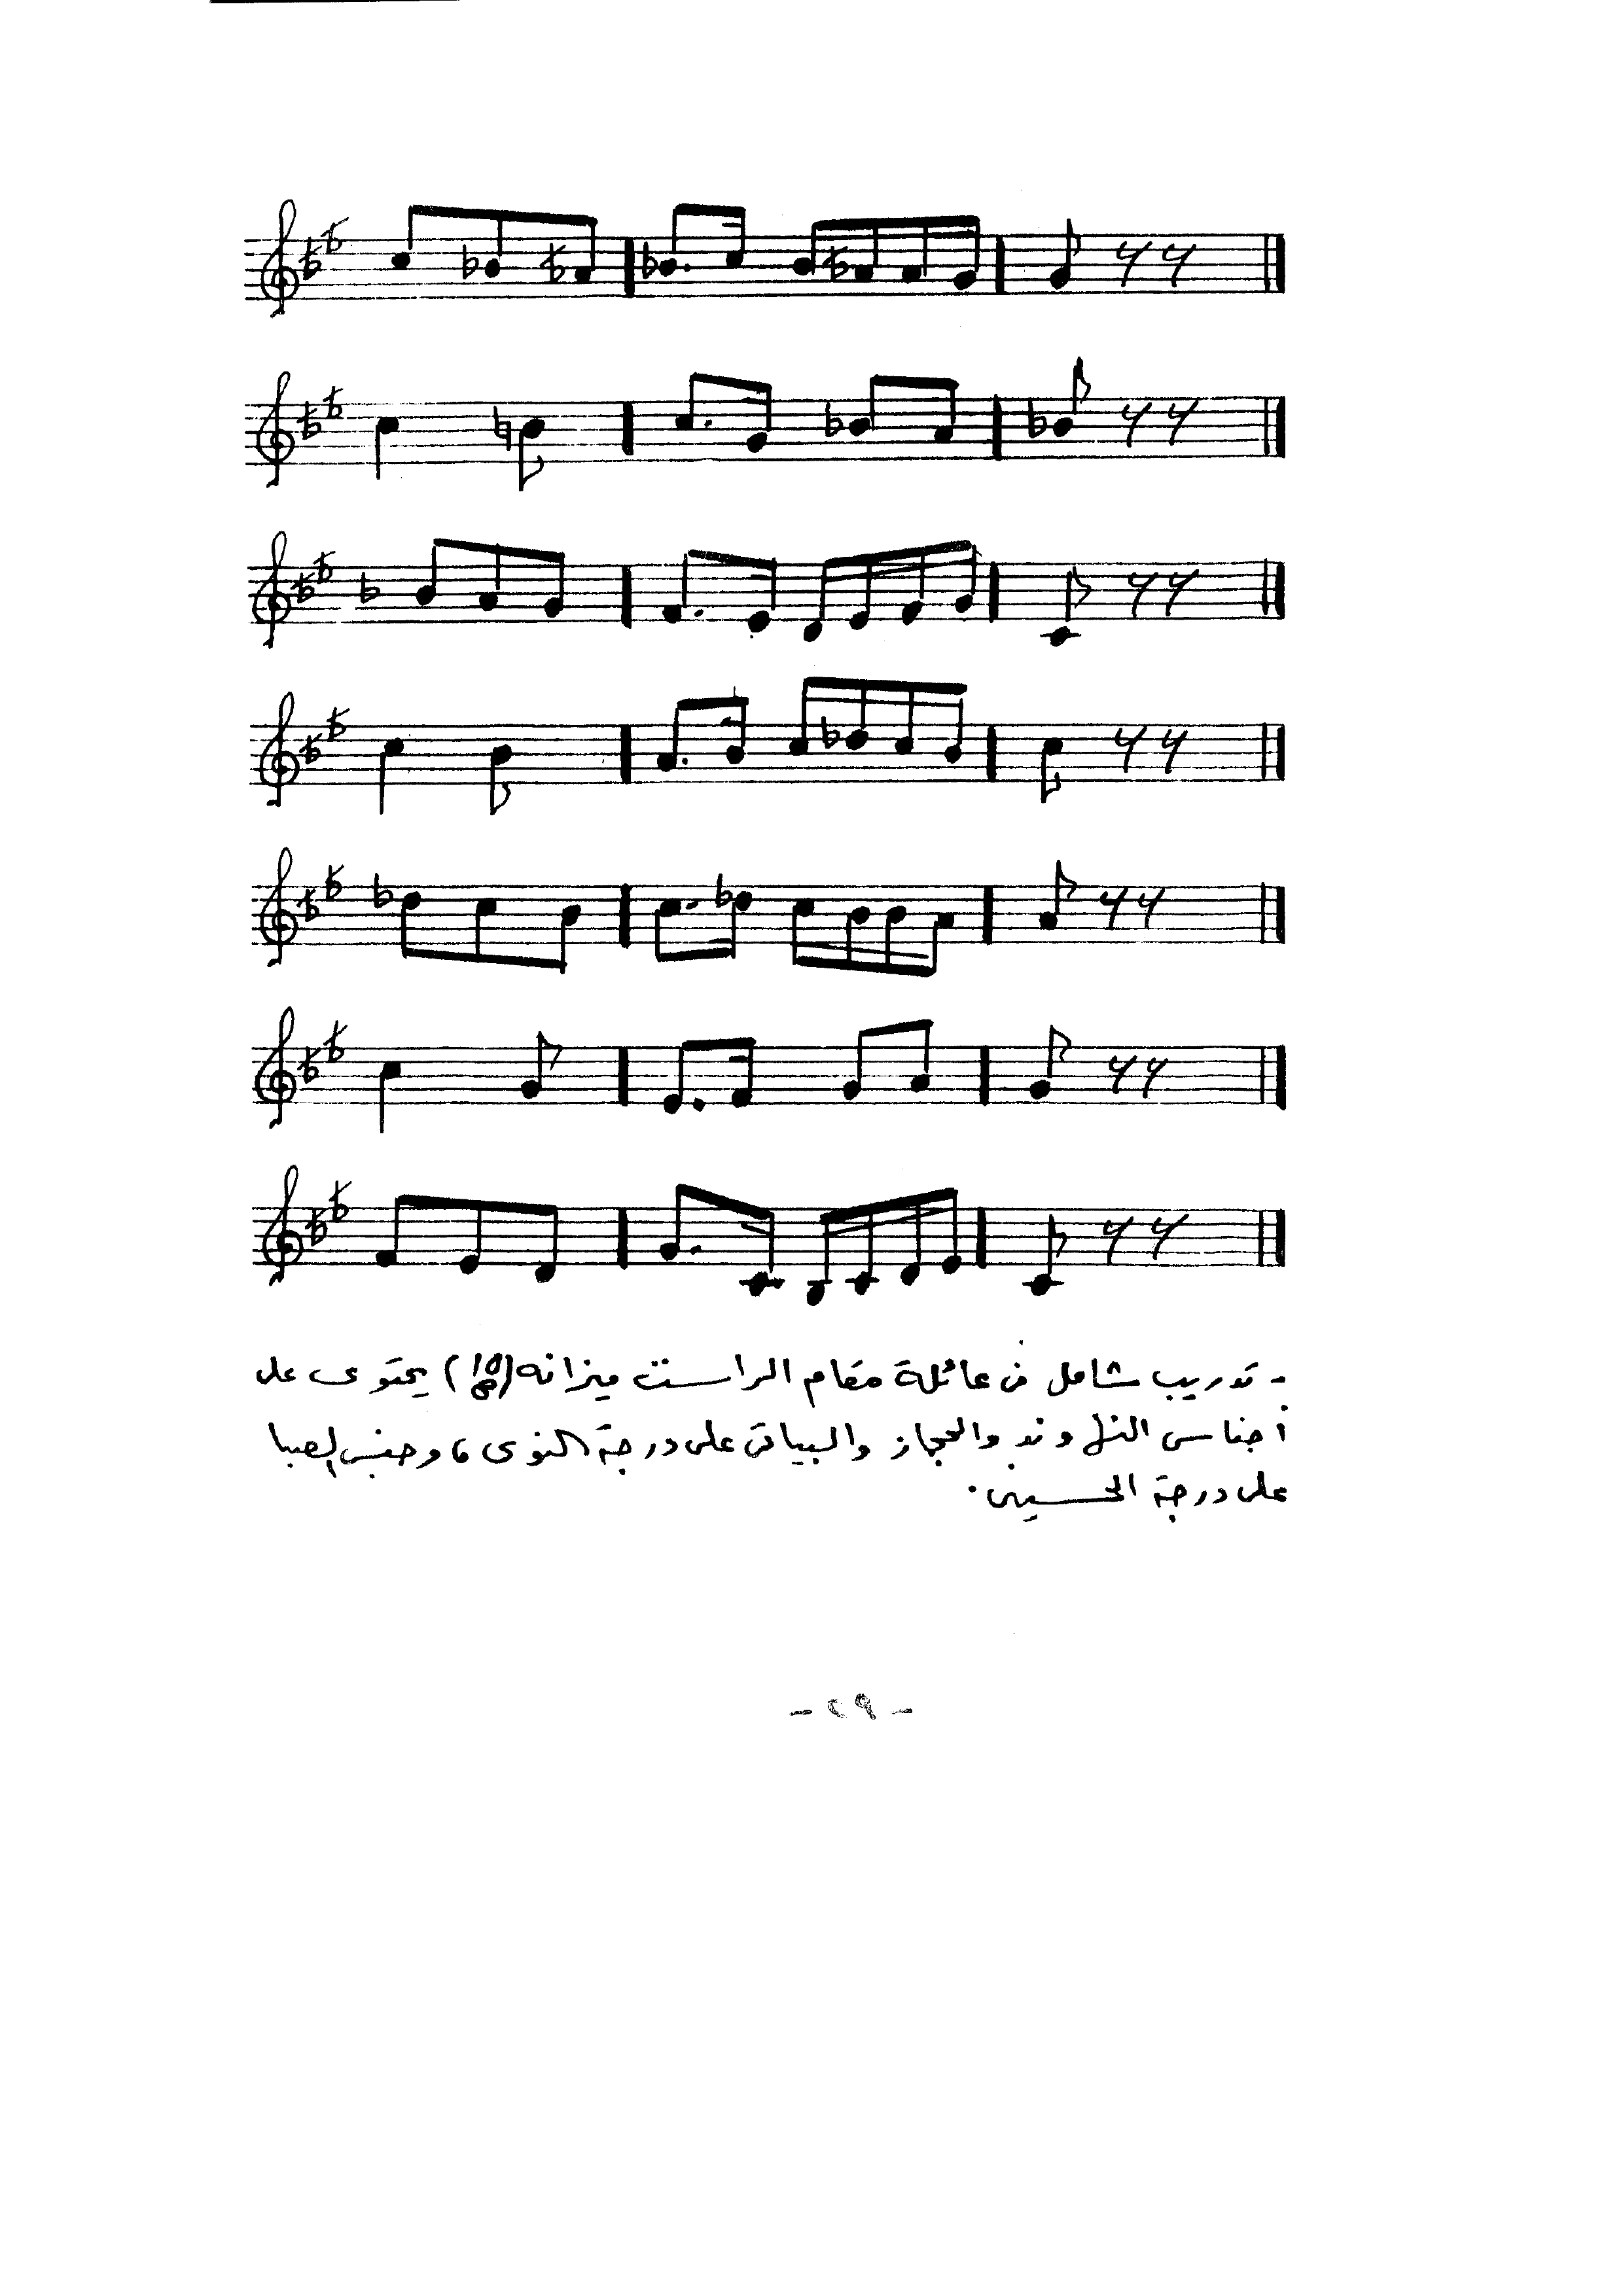 - تدريب شامل من عائلة مقام الراست ميزانه (١٥/٨) يحتوى على
أجناس النهاوند والحجاز والبياتى على درجة النوى ، وجنس الصبا
على درجة الحسينى .
- ٢٩ -